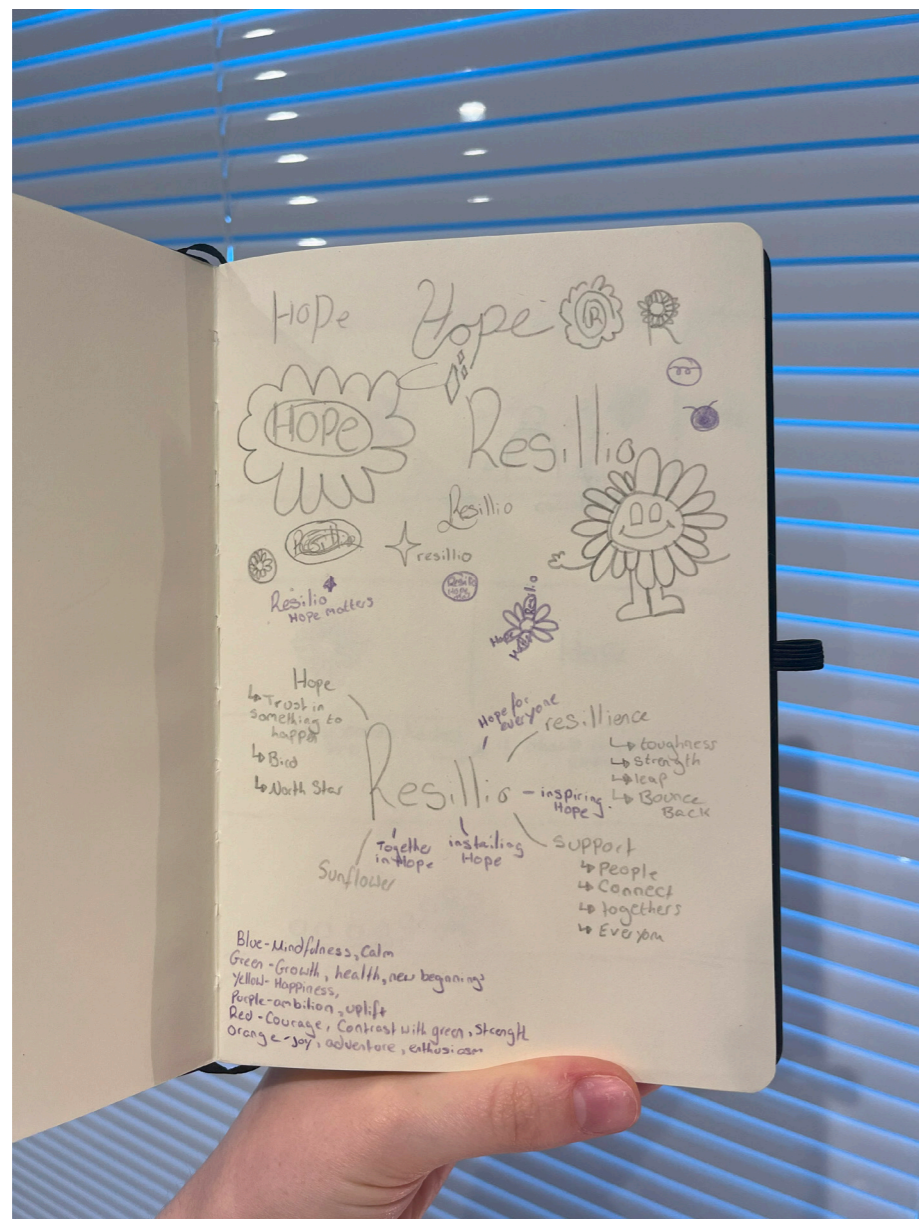 HOPe
Hope
R
R
HOPe
Resillio
Resillio
Resillio
resillio
Resilio
HOPE matters
Resilio
HOPE
Resilio
Hope
Matters
Hope
↳ Trust in
something to
happen
↳ Bird
↳ North Star
Hope for
everyone
resillience
↳ toughness
↳ strength
↳ leap
↳ Bounce
Back
Resillio
- inspiring
Hope
Together
in Hope
instailing
Hope
Sunflower
support
↳ People
↳ Connect
↳ togethers
↳ Everyon
Blue - Mindfulness, Calm
Green - Growth, health, new begonings
Yellow - Happiness,
Purple - ambition, uplift
Red - Courage, Contrast with green, strength
Orange - Joy, adventore, enthusiasm